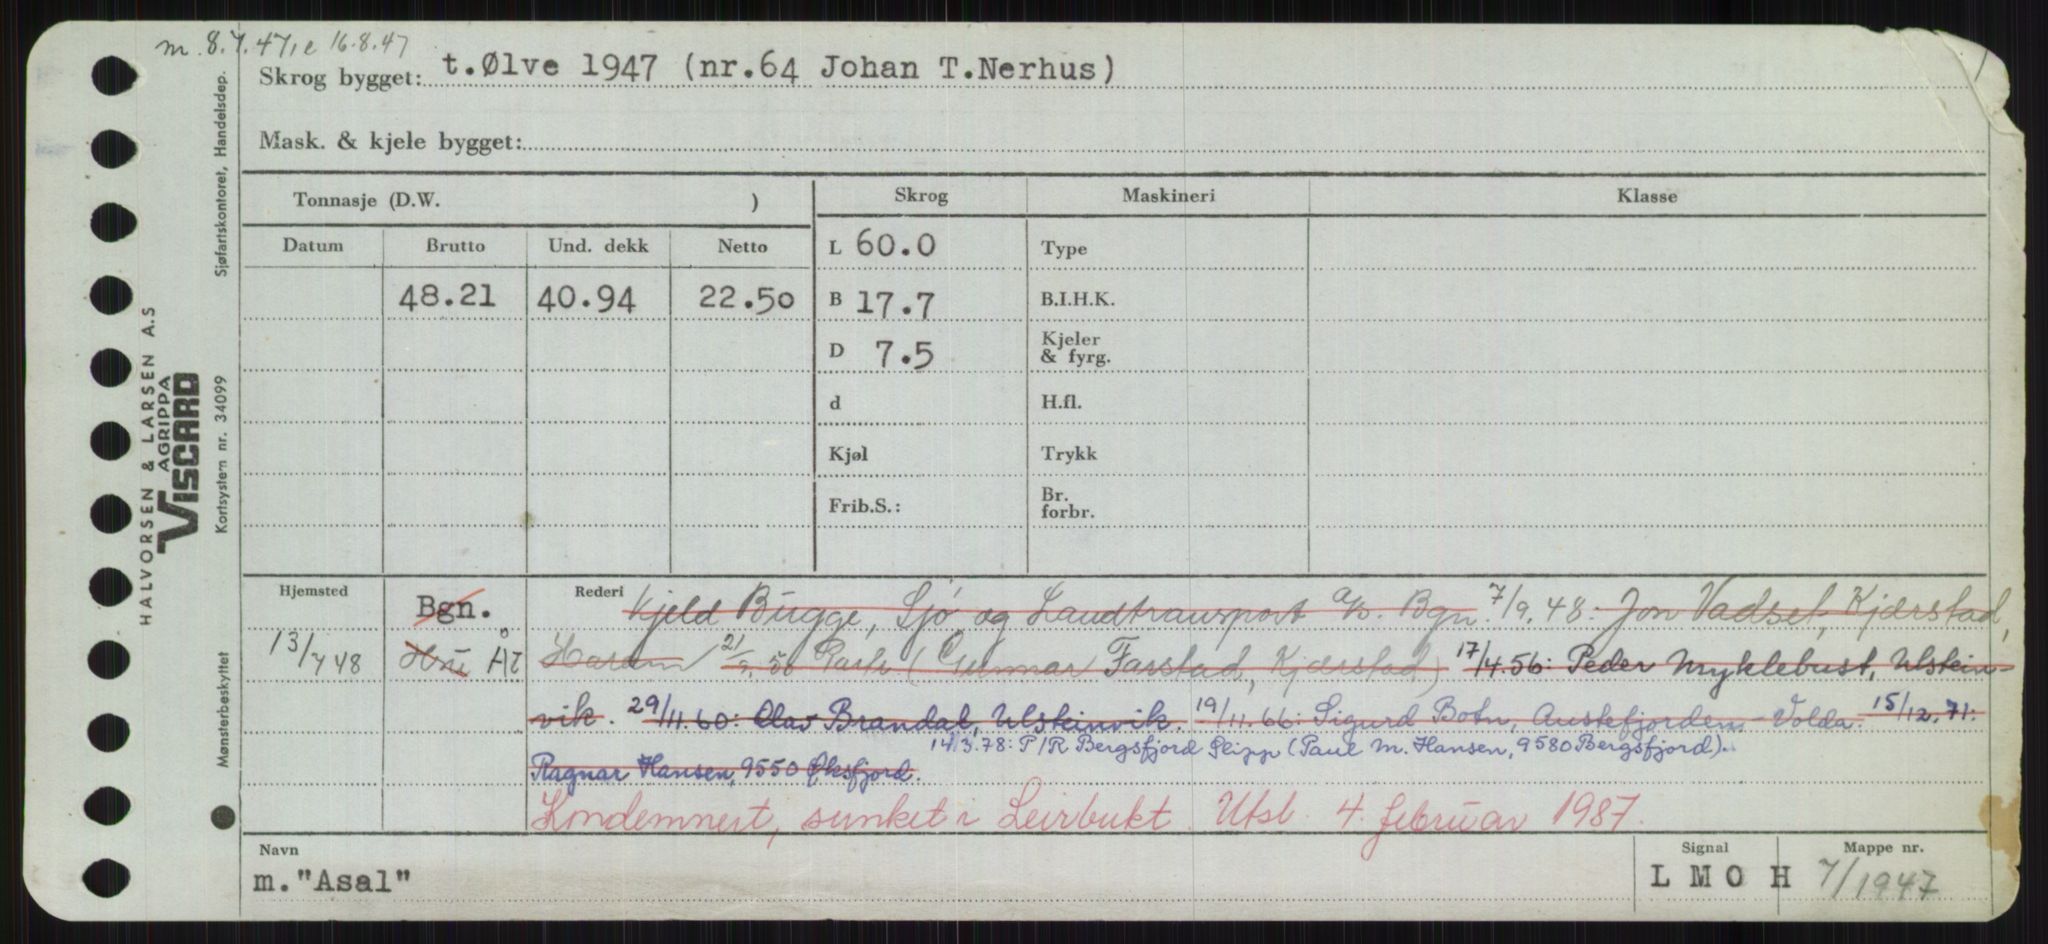 m. 8.7.47, e 16.8.47
Skrog bygget: t.Ølve 1947 (nr.64 Johan T.Nerhus)
Mask. & kjele bygget:
Tonnasje (D.W. )
Skrog
Maskineri
Klasse
Datum
Brutto
Und. dekk
Netto
L 60.0
Type
48.21
40.94
22.50
B 17.7
B.I.H.K.
D 7.5
Kjeler
& fyrg.
d
H.fl.
Kjøl
Trykk
Frib.S.:
Br.
forbr.
Hjemsted
Bgn.
Rederi Kjeld Bugge, Sjø og Landtransport a/s. Bgn. 7/9.48. Jon Vadset, Kjærstad,
13/7 48
Åt
Haram 21/9.50 Gunnar Farstad, Kjærstad) 17/4.56: Peder Myklebust, Ulstein-
vik. 29/11.60: Olav Brandal, Ulsteinvik. 19/11.66: Sigurd Botn, Austefjorden - Volda. 15/12.71:
14.3.78: P/R Bergsfjord Slipp (Paul M. Hansen, 9580 Bergsfjord).
Ragnar Hansen, 9550 Øksfjord.
Kondemnert, sunket i Leirbukt. Utsl. 4. februar 1987.
Navn
m."Asal"
Signal
L M O H
Mappe nr.
7/1947
HALVORSEN & LARSEN A.S
AGRIPPA
VISCARD
Sjøfartskontoret, Handelsdep.
Kortsystem nr. 34099
Mønsterbeskyttet